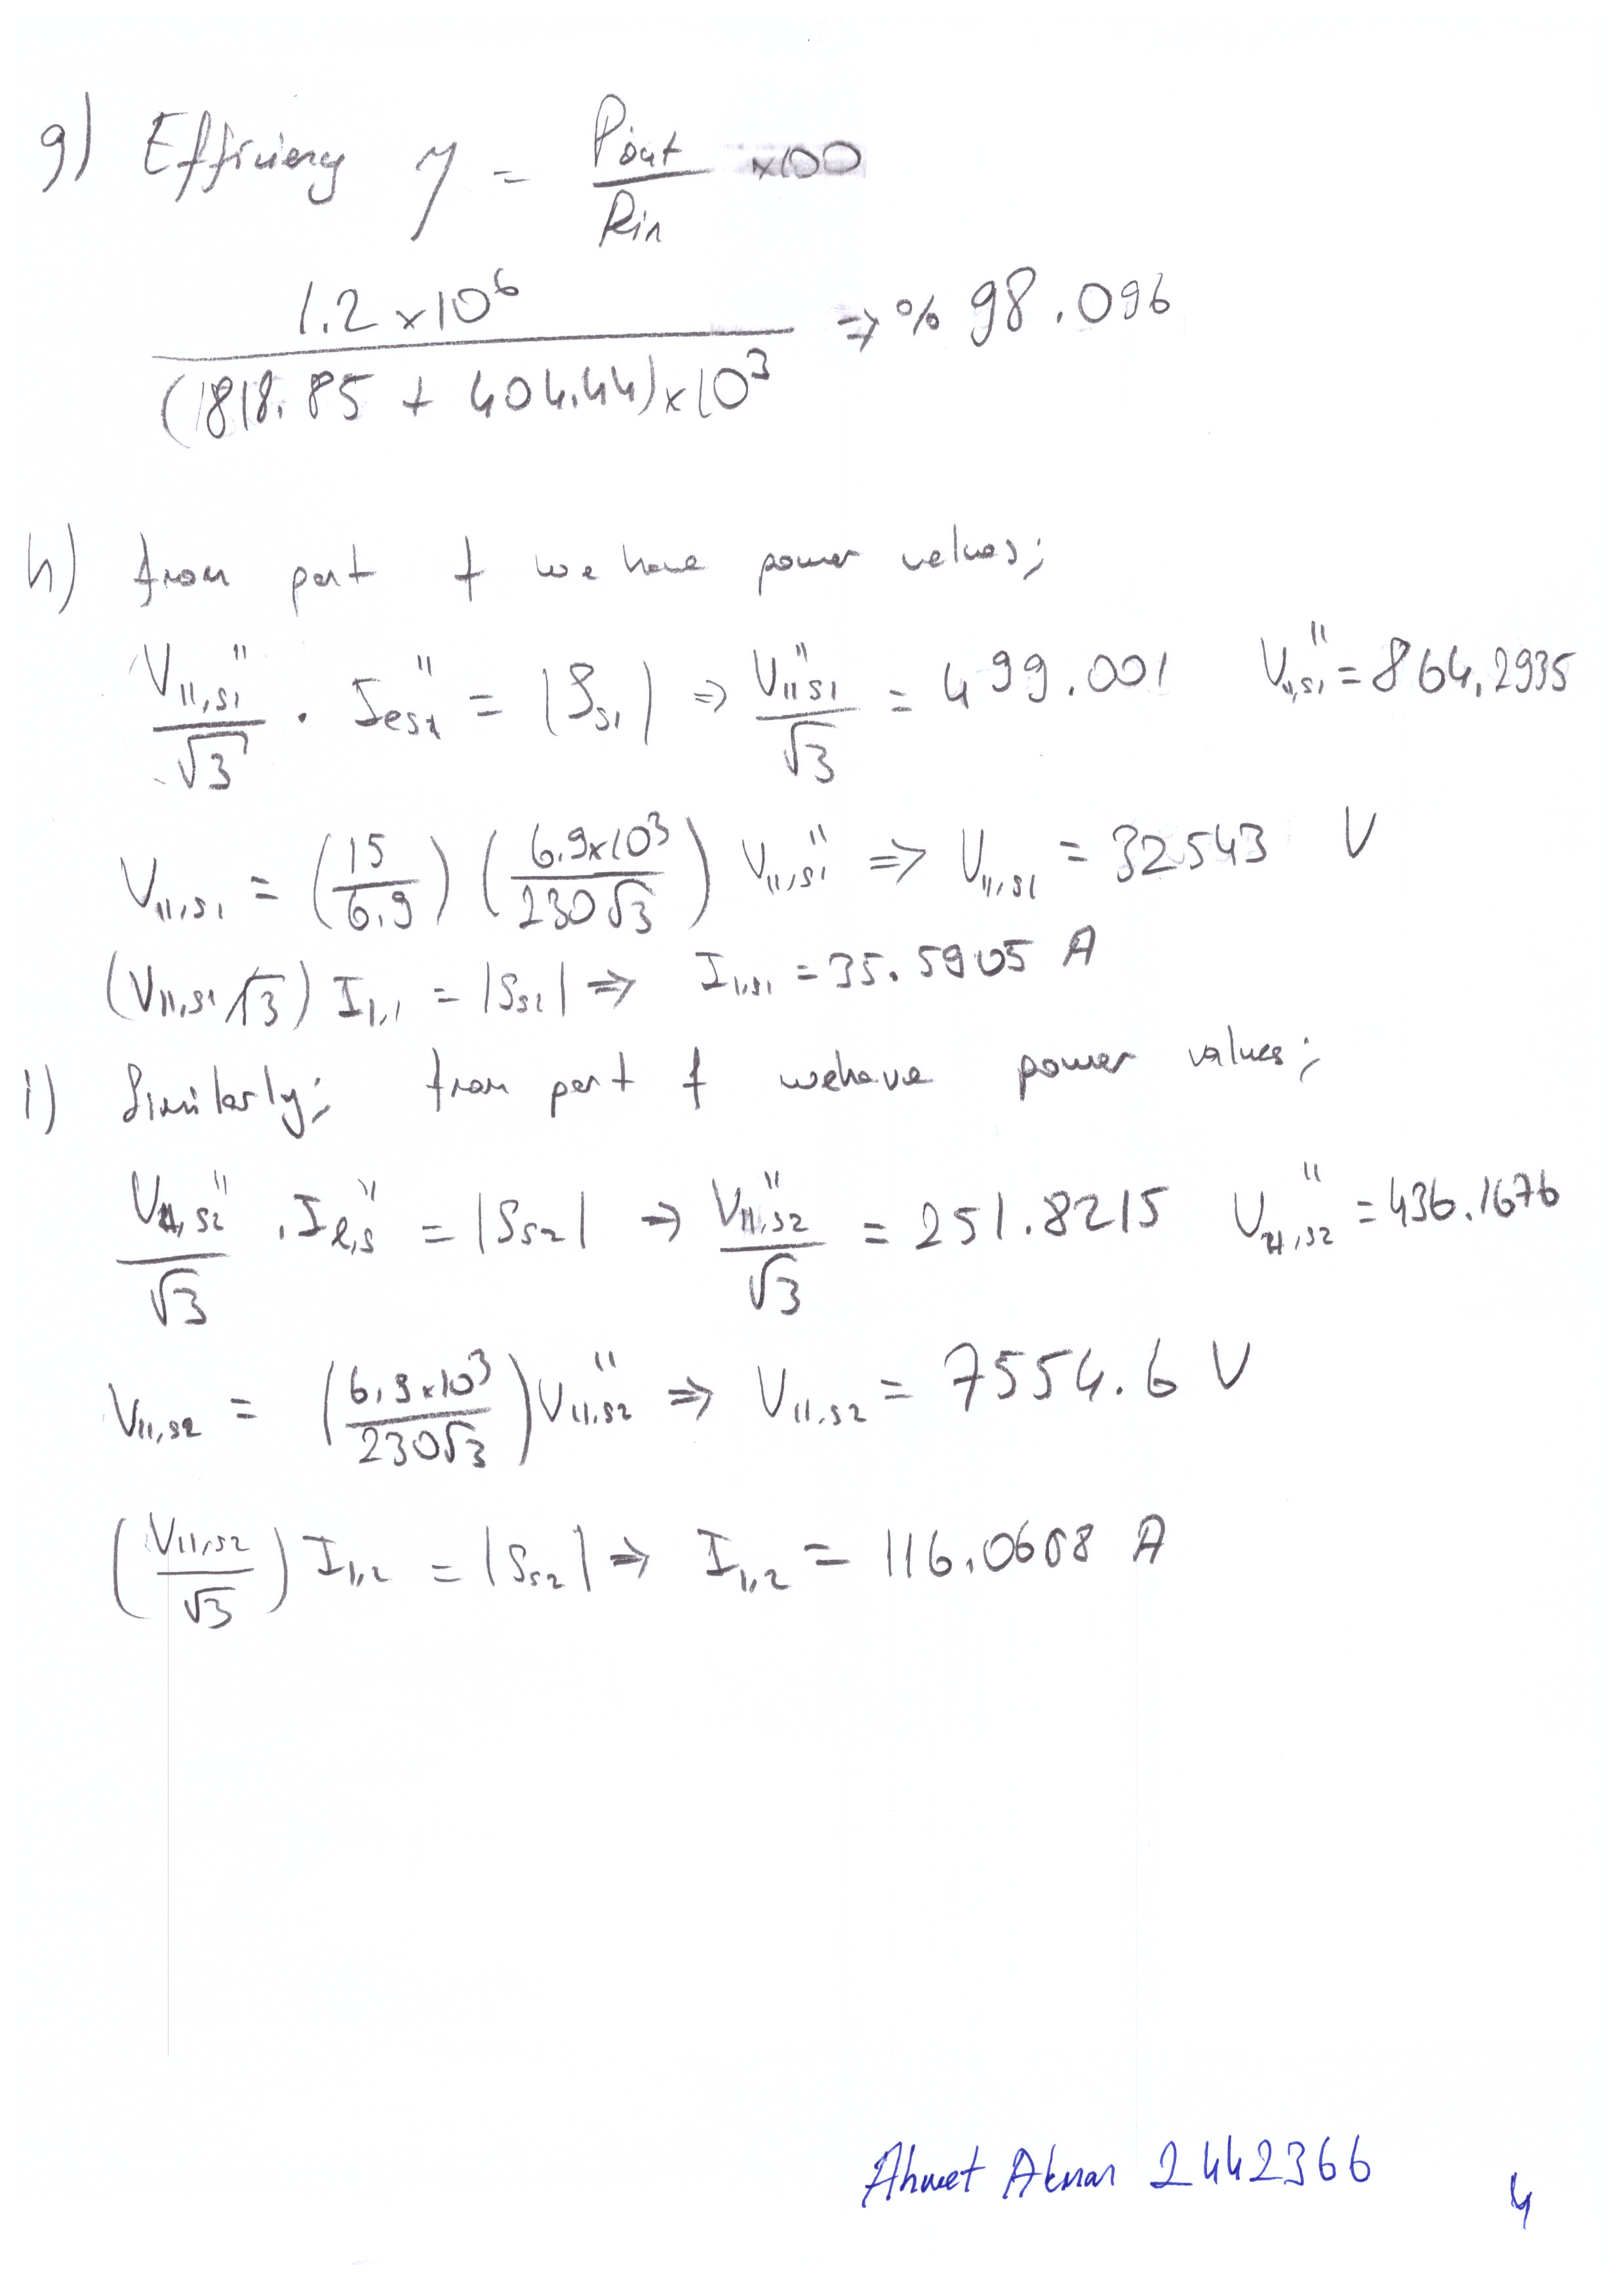 g) Efficiency η = Pout / Pin ×100
1.2×10⁶ / (818.85 + 404.44)×10³ ⇒ % 98.096
h) from part f we have power values;
V₁₁,s₁'' / √3 . Ies₁'' = |Ss₁| ⇒ V₁₁s₁'' / √3 = 499.001 V₁₁,s₁'' = 864.2935
V₁₁,s₁ = (15 / 6.9) (6.9×10³ / 230√3) V₁₁,s₁'' ⇒ V₁₁,s₁ = 32543 V
(V₁₁,s₁/√3) I₁,₁ = |Ss₁| ⇒ I₁,s₁ = 35.5905 A
i) Similarly; from part f we have power values;
V₁₁,s₂'' / √3 . Iℓ,s'' = |Ss₂| ⇒ V₁₁,s₂'' / √3 = 251.8215 V₁₁,s₂'' = 436.1676
V₁₁,s₂ = (6.9×10³ / 230√3) V₁₁,s₂'' ⇒ V₁₁,s₂ = 7554.6 V
(V₁₁,s₂ / √3) I₁,₂ = |Ss₂| ⇒ I₁,₂ = 116.0608 A
Ahmet Akman 2442366
4